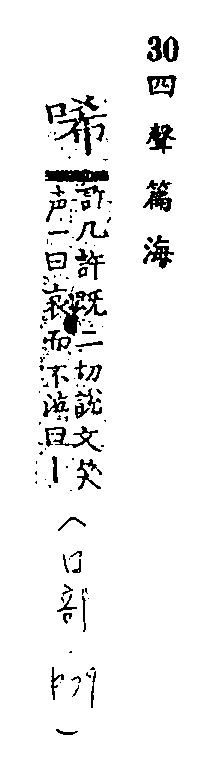 30 四聲篇海
唏
許几許既二切說文笑
声一曰哀而不泣曰丨
(口部．